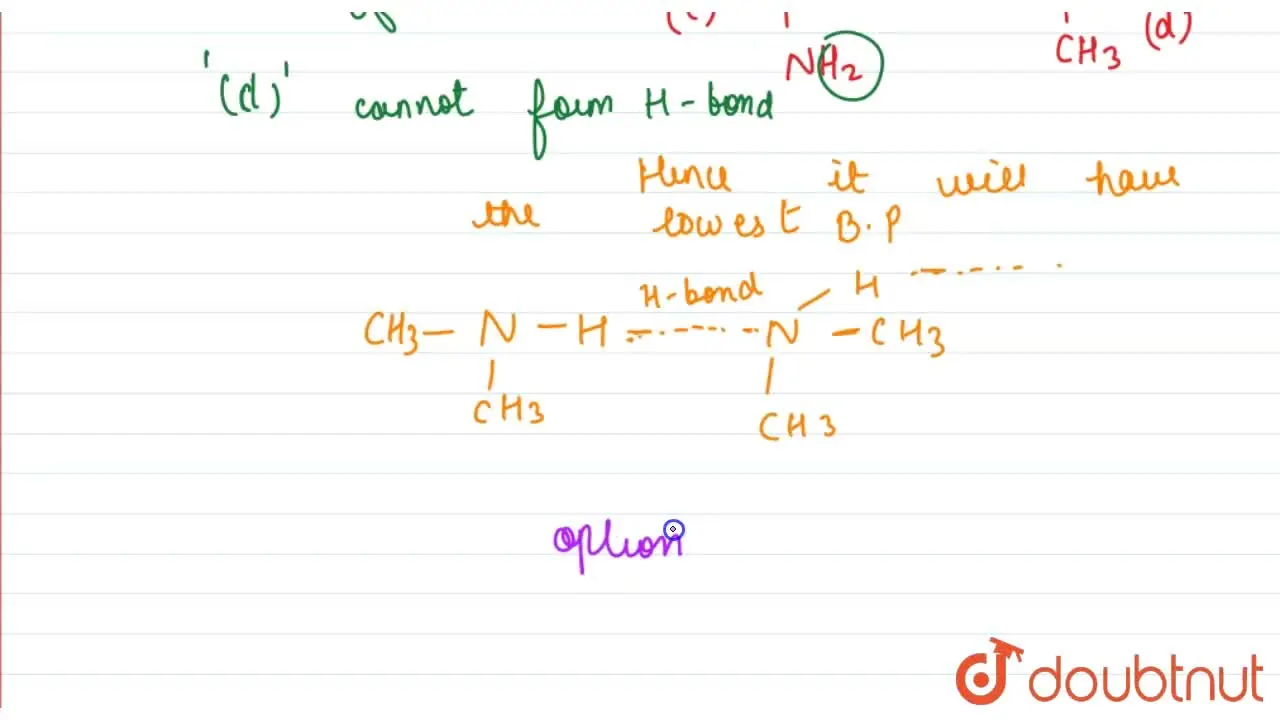 of (c) (d)
NH2 CH3
'(d)' cannot form H-bond
Hence it will have
the lowest B.P
H-bond H
CH3 N H N CH3
CH3 CH3
option
doubtnut